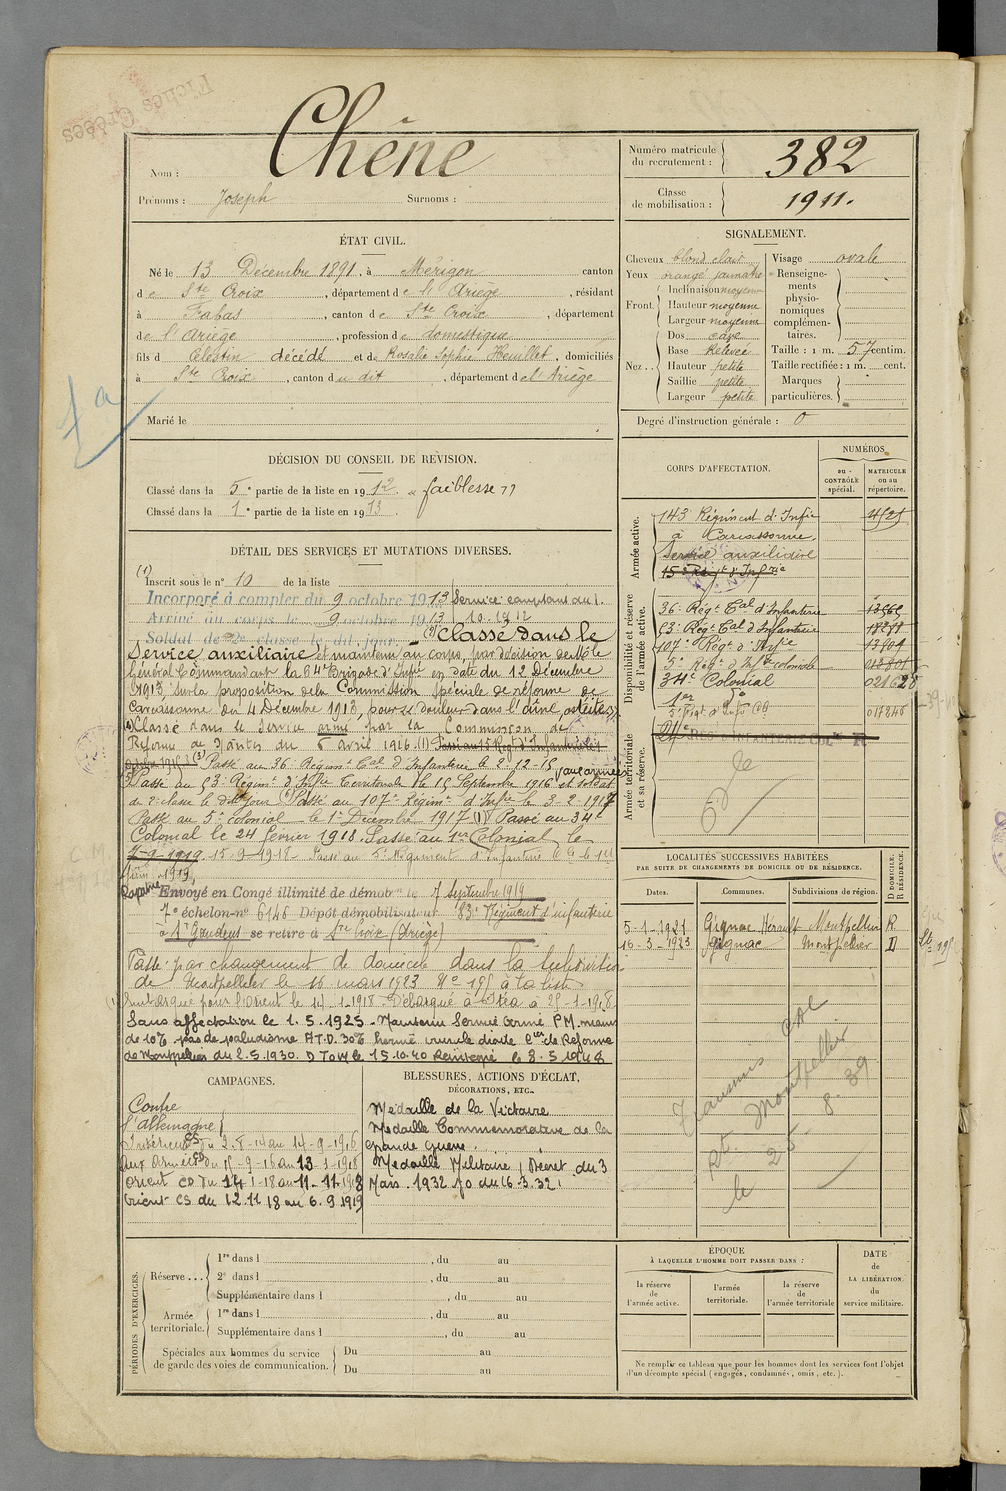 Fiches Créées
Nom : Chêne
Prénoms : Joseph Surnoms :
Numéro matricule du recrutement : 382
Classe de mobilisation : 1911.
ÉTAT CIVIL.
Né le 13 Décembre 1891, à Mérigon canton
de Ste Croix, département de l'Ariège, résidant
à Fabas, canton de Ste Croix, département
de l'Ariège, profession de domestique
fils de Célestin décédé et de Rosalie Sophie Heuillet, domiciliés
à Ste Croix, canton du dit, département de l'Ariège
Marié le
SIGNALEMENT.
Cheveux blond clair
Yeux orangé jaunâtre
Front Inclinaison moyenne
Hauteur moyenne
Largeur moyenne
Nez Dos cave
Base Relevée
Hauteur petite
Saillie petite
Largeur petite
Visage ovale
Renseignements physionomiques complémentaires.
Taille : 1 m. 57 centim.
Taille rectifiée : 1 m. cent.
Marques particulières.
Degré d'instruction générale : 0
DÉCISION DU CONSEIL DE RÉVISION.
Classé dans la 5e partie de la liste en 1912. "faiblesse"
Classé dans la 1e partie de la liste en 1913.
DÉTAIL DES SERVICES ET MUTATIONS DIVERSES.
(1) Inscrit sous le n° 10 de la liste
Incorporé à compter du 9 octobre 1913 Service comptant du 1.
Arrivé au corps le 9 octobre 1913 10.1912
Soldat de 2e classe le dit jour. (2) Classé dans le
Service auxiliaire et maintenu au corps, par décision de Mr le
Général Commandant la 64e Brigade d'Infie en date du 12 Décembre
1913, sur la proposition de la Commission Spéciale de réforme de
Carcassonne du 4 Décembre 1913, pour
Classé dans le Service armé par la Commission de
Réforme de Nantes du 6 avril 1916
Passé au 36e Régiment Cal d'Infanterie le 2-12-15
Passé au 53e Régiment d'Infie Territoriale le 15 Septembre 1916 et soldat
de 2e classe le dit jour Passé au 107e Régimt d'Infie le 3-2-1917
Passé au 5e colonial le 1er Décembre 1917 Passé au 34e
Colonial le 24 février 1918. Passé au 1er Colonial le
7-9-1919 15-9-1918 Passé au 5e Régiment d'Infanterie
Juin 1919,
Rapatrié Envoyé en Congé illimité de démobon le 7 septembre 1919
7e échelon n° 6146 Dépôt démobilisateur 83e Régiment d'infanterie
à St Gaudens se retire à Ste Croix (Ariège)
Passé par changement de domicile dans la subdivision
de Montpellier le 16 mars 1923 N° 195 à la liste
Embarqué pour l'orient le 14-1-1918 - Débarqué à Itéa le 25-1-1918
Sans affectation le 1.5.1925 - Maintenu Service Armé P.M. moins
de 10% pas de paludisme A.T.D. 30% hernie crurale droite Con de Réforme
de Montpellier du 2.5.1930.
CAMPAGNES.
Contre
l'allemagne
Intérieur CS du 2-8-14 au 14-9-1916
Aux Armées CD du 15-9-16 au 13-1-1918
Orient CD du 14-1-18 au 11-11-1918
Orient CS du 12.11.18 au 6.9.1919
BLESSURES, ACTIONS D'ÉCLAT, DÉCORATIONS, ETC.
Médaille de la Victoire
Médaille Commemorative de la
Grande Guerre.
Médaille Militaire, Décret du 3
Mars 1932 JO du 16.3.32
CORPS D'AFFECTATION.
NUMÉROS
DU CONTRÔLE spécial.
MATRICULE ou au répertoire.
Armée active.
143 Régiment d'Infie 4525
à Carcassonne.
Service auxiliaire
15e Régt d'Infrie
Disponibilité et réserve de l'armée active.
36e Régt Cal d'Infanterie
53e Régt Cal d'Infanterie
107e Régt d'Infie
5e Régt d'Infie coloniale
34e Colonial 021628
1er
5e Régt d'Infie Cle 017846
Armée territoriale et sa réserve.
REGt D'INFANTERIE COLle
LOCALITÉS SUCCESSIVES HABITÉES
PAR SUITE DE CHANGEMENTS DE DOMICILE OU DE RÉSIDENCE.
Dates. Communes. Subdivisions de région. D DOMICILE, R RÉSIDENCE.
5-1-1921 Gignac Hérault Montpellier R
16-3-1923 Gignac Montpellier D
Transmis
Montpellier
le 25 8 39
PÉRIODES D'EXERCICES.
Réserve 1re dans l , du au
2e dans l , du au
Supplémentaire dans l , du au
Armée territoriale. 1re dans l , du au
Supplémentaire dans l , du au
Spéciales aux hommes du service de garde des voies de communication. Du au
Du au
ÉPOQUE
À LAQUELLE L'HOMME DOIT PASSER DANS :
la réserve de l'armée active.
l'armée territoriale.
la réserve de l'armée territoriale
DATE de LA LIBÉRATION du service militaire.
Ne remplir ce tableau que pour les hommes dont les services font l'objet
d'un décompte spécial (engagés, condamnés, omis, etc.).